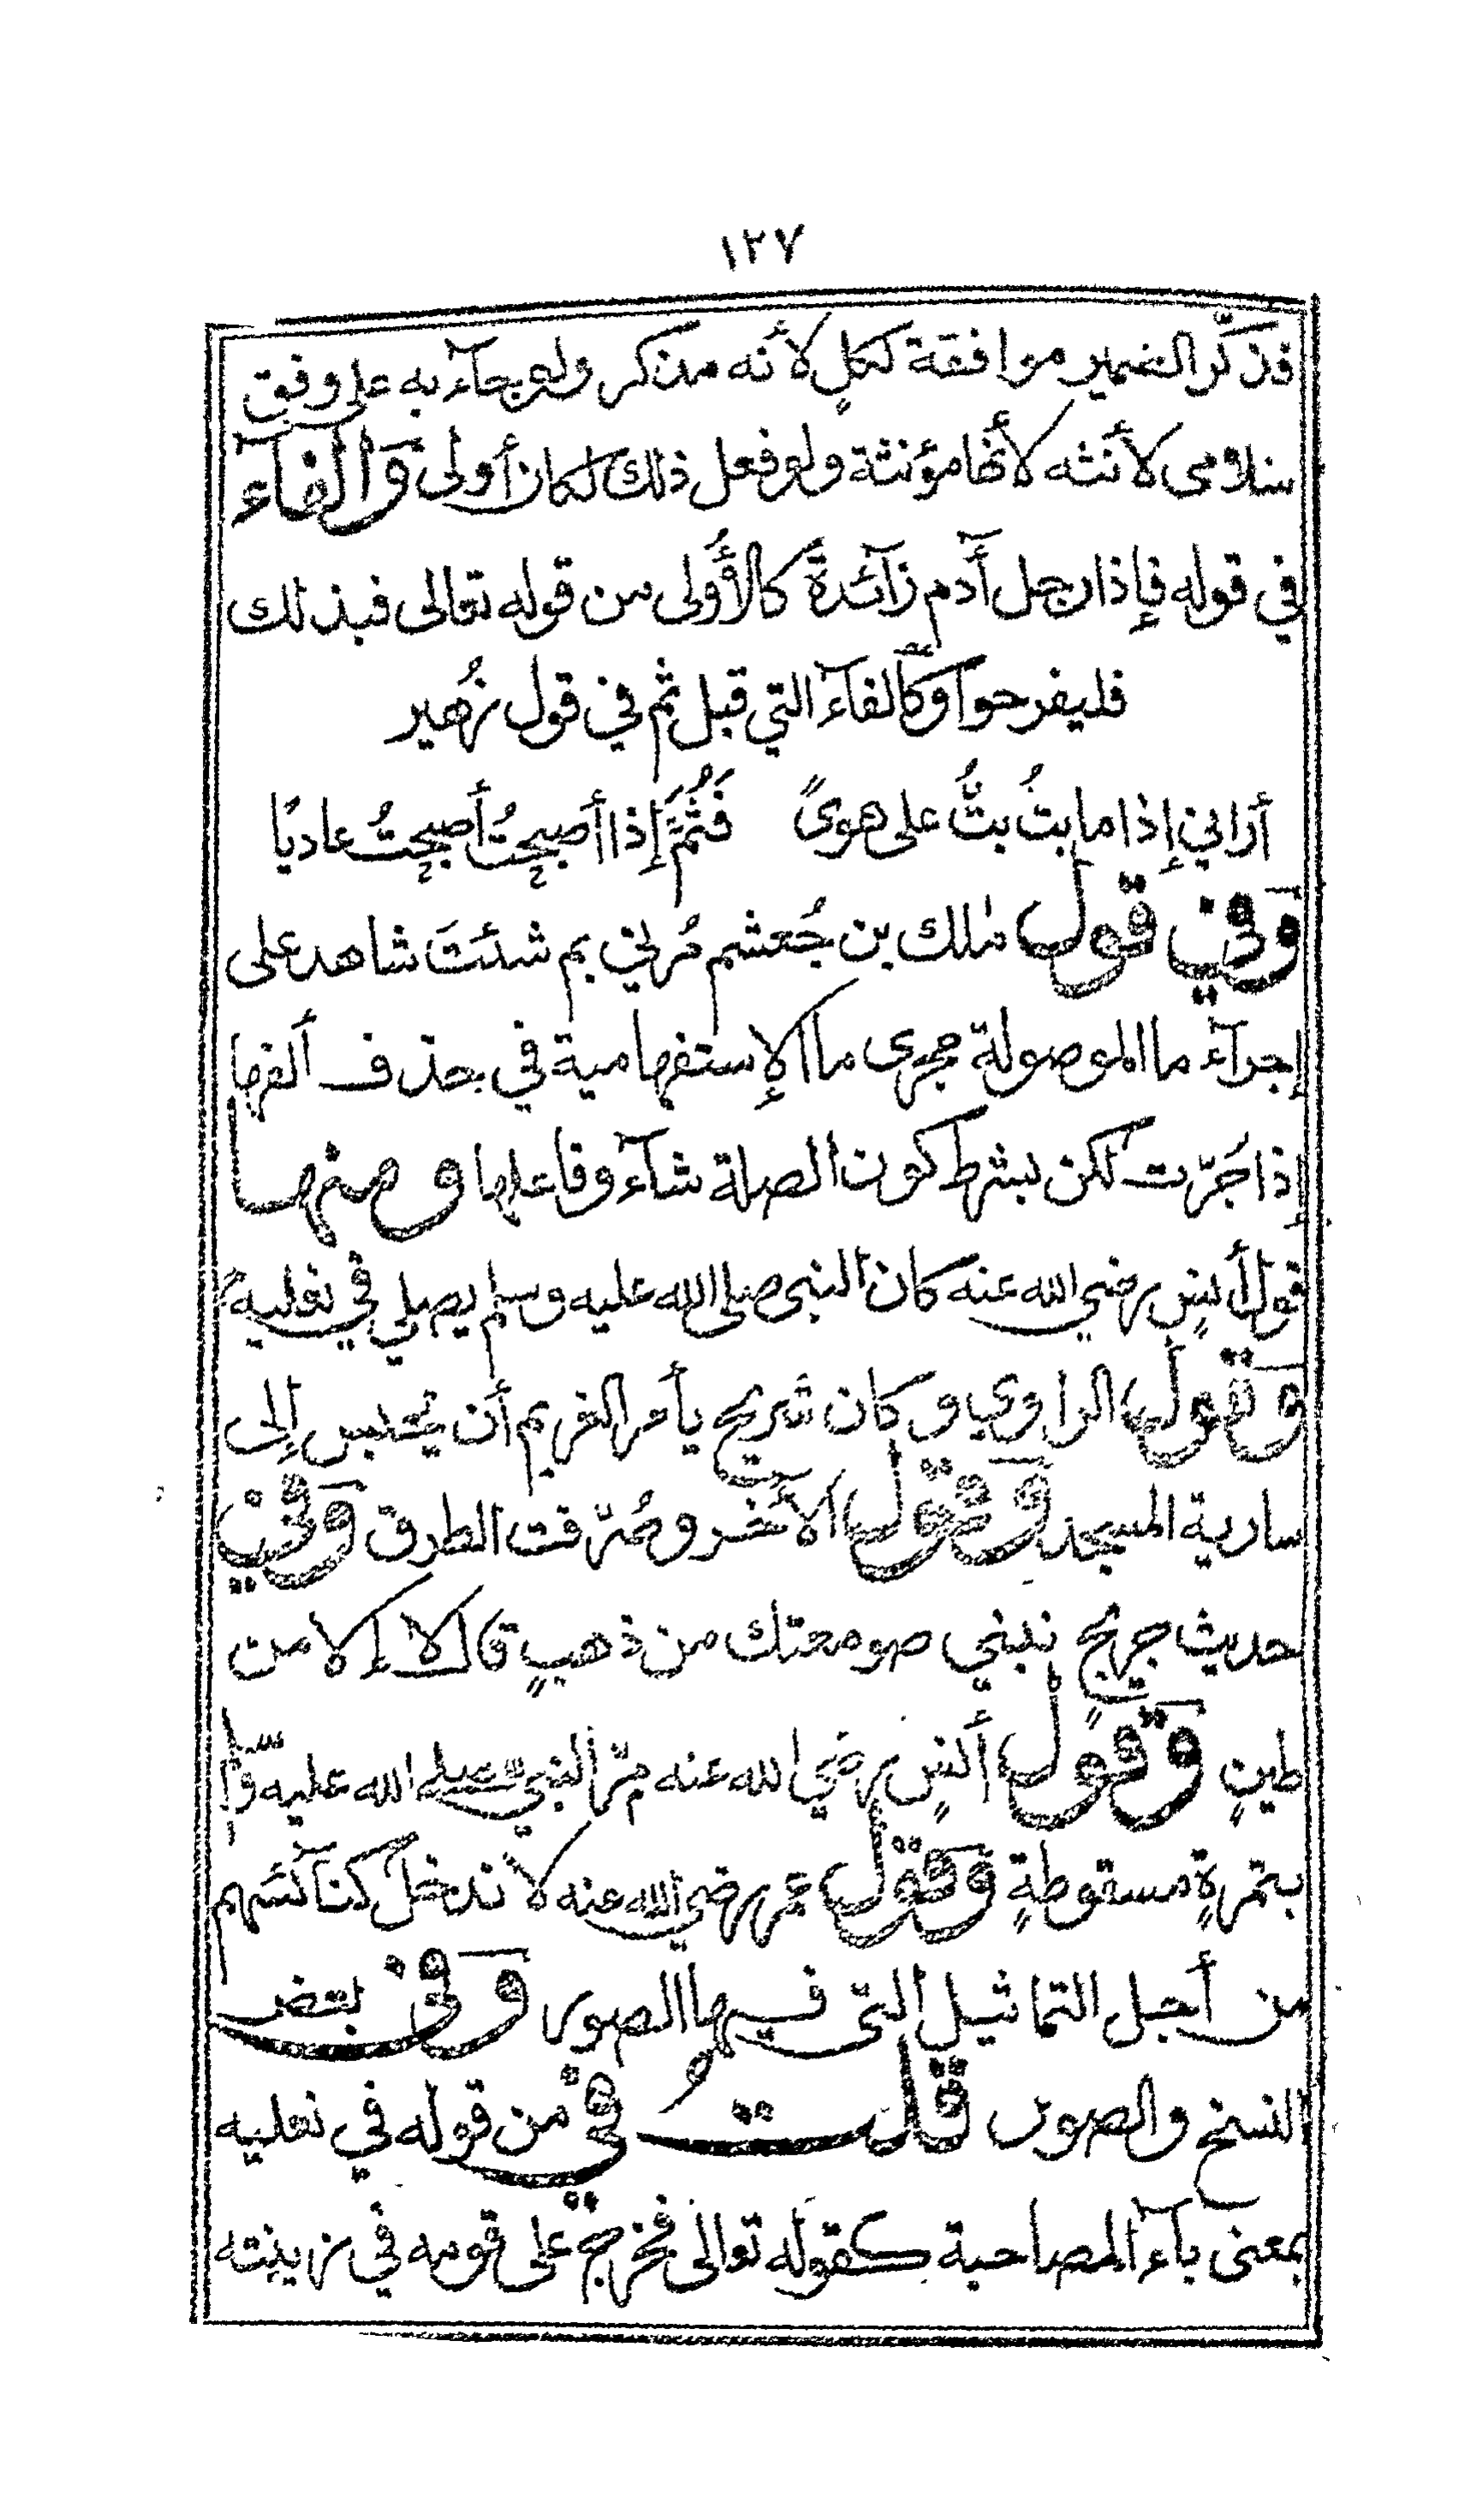 ١٢٧
فذكّر الضمير موافقة لكلٍ لأنه مذكر ولو جآء به على وفق
سلامى لأنثه لأنها مؤنثة ولو فعل ذلك لكان أولى وَالفآء
في قوله فإذا رجل آدم زآئدةً كالأُولى من قوله تعالى فبذلك
فليفرحوا وكالفآء التي قبل ثم في قول زُهير
أراني إذا ما بتُ بتُّ على هوىً فَثُمَّ إذا أصبحتُ أصبحتُ عاديًا
وَفي قول مٰلك بن جُعشم مُرني بم شئتَ شاهد على
إجرآء ما الموصولة مجرى ما الإستفهامية في حذف ألفها
إذا جُرّت لكن بشرط كون الصلة شآء وفاعلها ومنهـا
قول أنسٍ رضي الله عنه كان النبى صلى الله عليه وسلم يصلي في نعليه
وَقول الراوي وكان شريح يأمر الغريم أن يحبس إلى
سارية المسجد وَقول الآخر وصُرّفت الطرق وَفي
حديث جريجٍ نبني صومعتك من ذهبٍ قال لا إلا من
طينٍ وَقول أنسٍ رضي الله عنه مرّ النبي صلى الله عليه وسلم
بتمرةٍ مسقوطةٍ وَقول عمر رضي الله عنه لا ندخل كنآئسهم
من أجل التماثيل التى فيها الصور وَفى بعض
النسخ والصور قلـتُ في من قوله في نعليه
بمعنى بآء المصاحبة كقوله تعالى فخرج على قومه في زينته